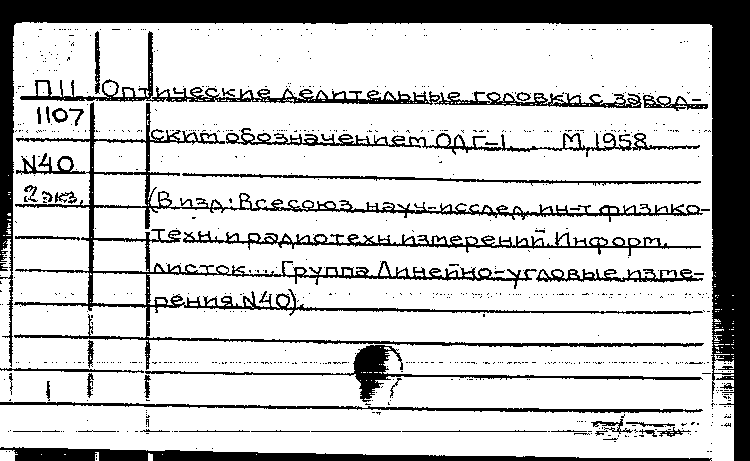 П11 Оптические делительные головки с завод-
1107
ским обозначением ОДГ-1. М, 1958
N40
2 экз. (В изд: Всесоюз науч-исслед. ин-т физико-
техн. и радиотехн. измерений. Информ.
листок.... Группа Линейно-угловые изме-
рения. N40).